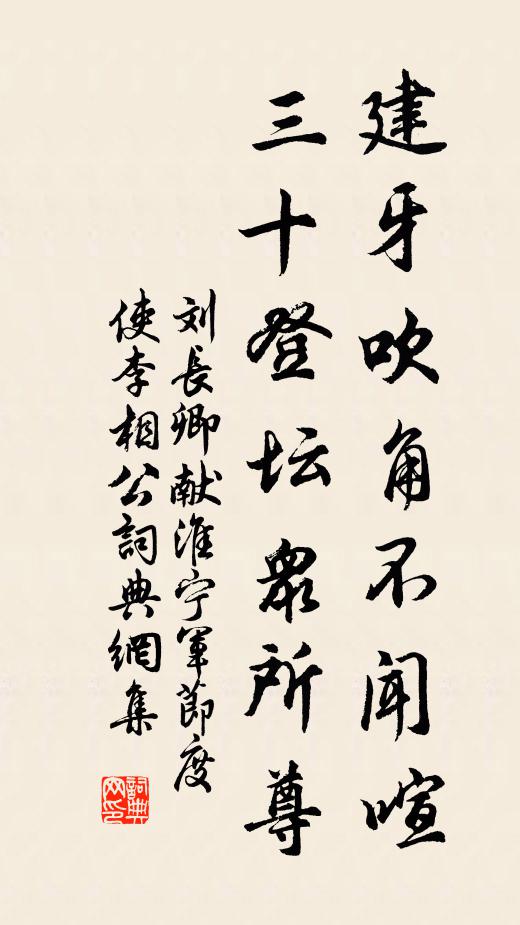 建牙吹角不闻喧
三十登坛眾所尊
刘長卿献淮宁軍節度
使李相公詞典網集
詞典
网印